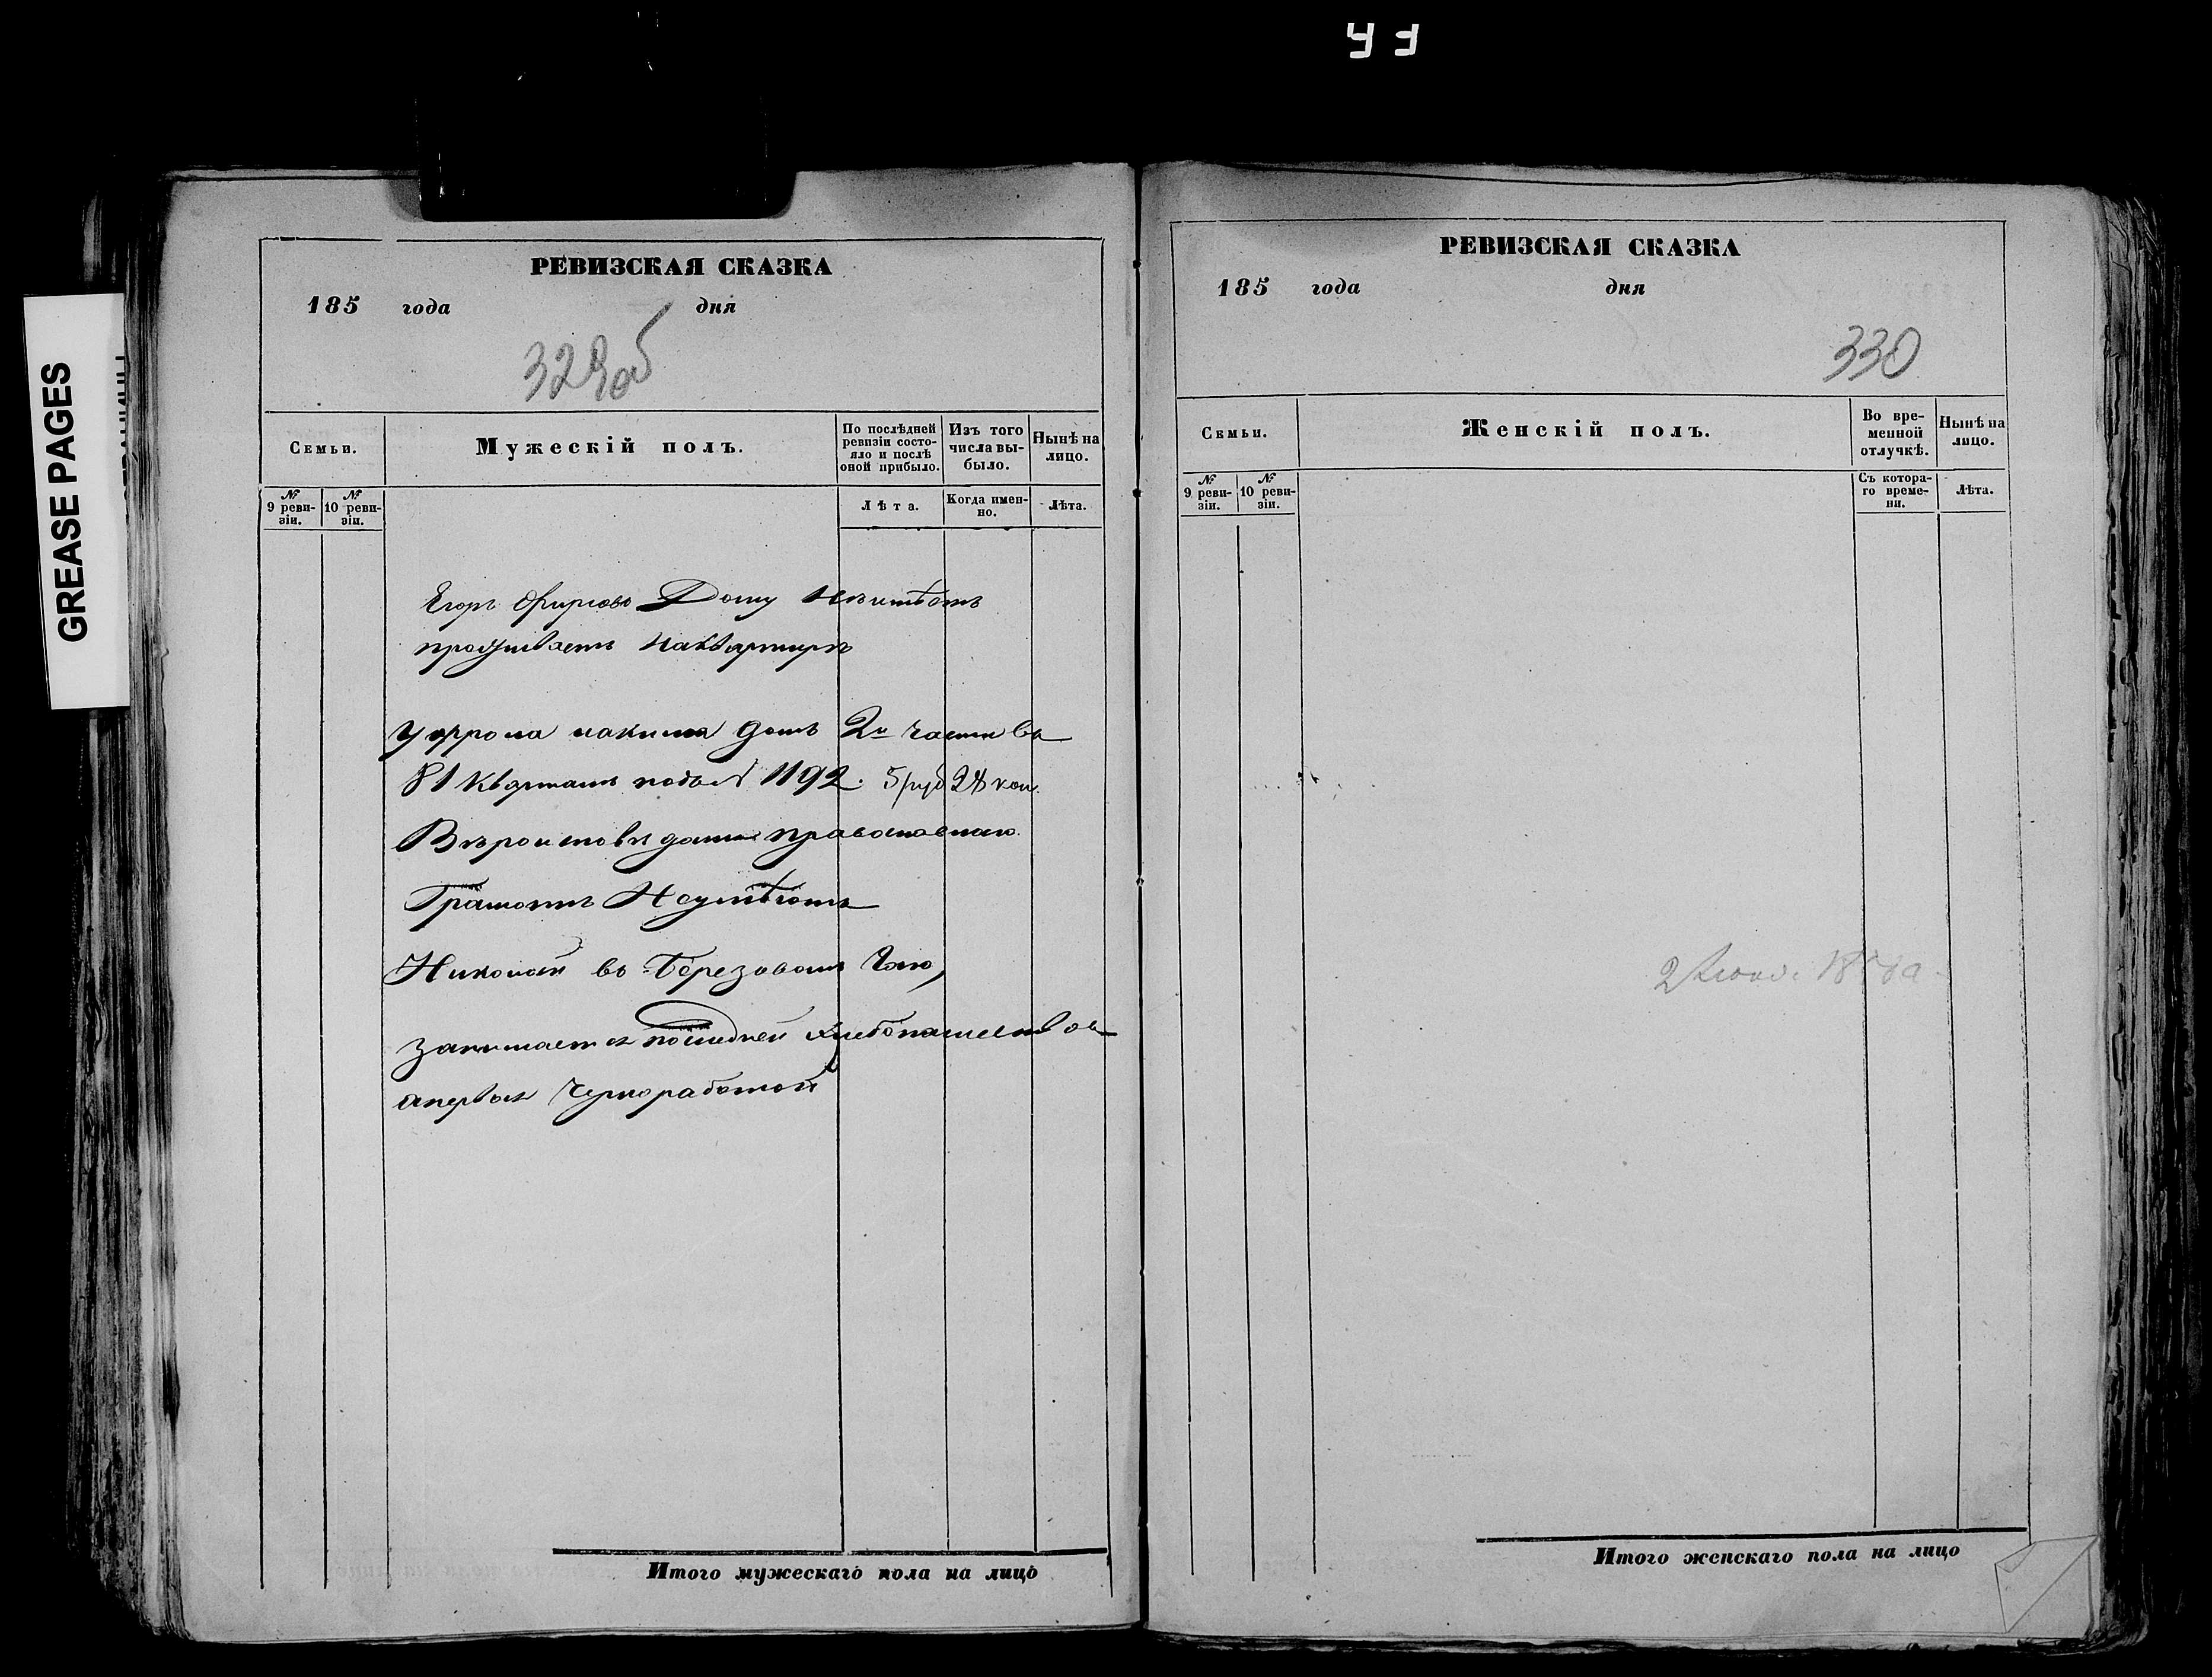 GREASE PAGES
РЕВИЗСКАЯ СКАЗКА
185 года дня
329об
Семьи.
Мужескій полъ.
По послѣдней ревизіи состояло и послѣ оной прибыло.
Изъ того числа выбыло.
Нынѣ на лицо.
№ 9 ревизіи.
№ 10 ревизіи.
Лѣта.
Когда именно.
Лѣта.
Егоръ Дому Неимѣетъ
проживаетъ наквартиръ
у домъ 2й части въ
81 кварталъ подъ № 1192. 5 руб 28 коп.
Вѣроисповѣдания православнаго
Грамотъ Неумѣютъ
Николай въ Березовомъ Гаю,
занимается последней хлебопашеством
апервой Черноработой
Итого мужескаго пола на лицо
РЕВИЗСКАЯ СКАЗКА
185 года дня
330
Семьи.
Женскій полъ.
Во временной отлучкѣ.
Нынѣ на лицо.
№ 9 ревизіи.
№ 10 ревизіи.
Съ котораго времени.
Лѣта.
Итого женскаго пола на лицо